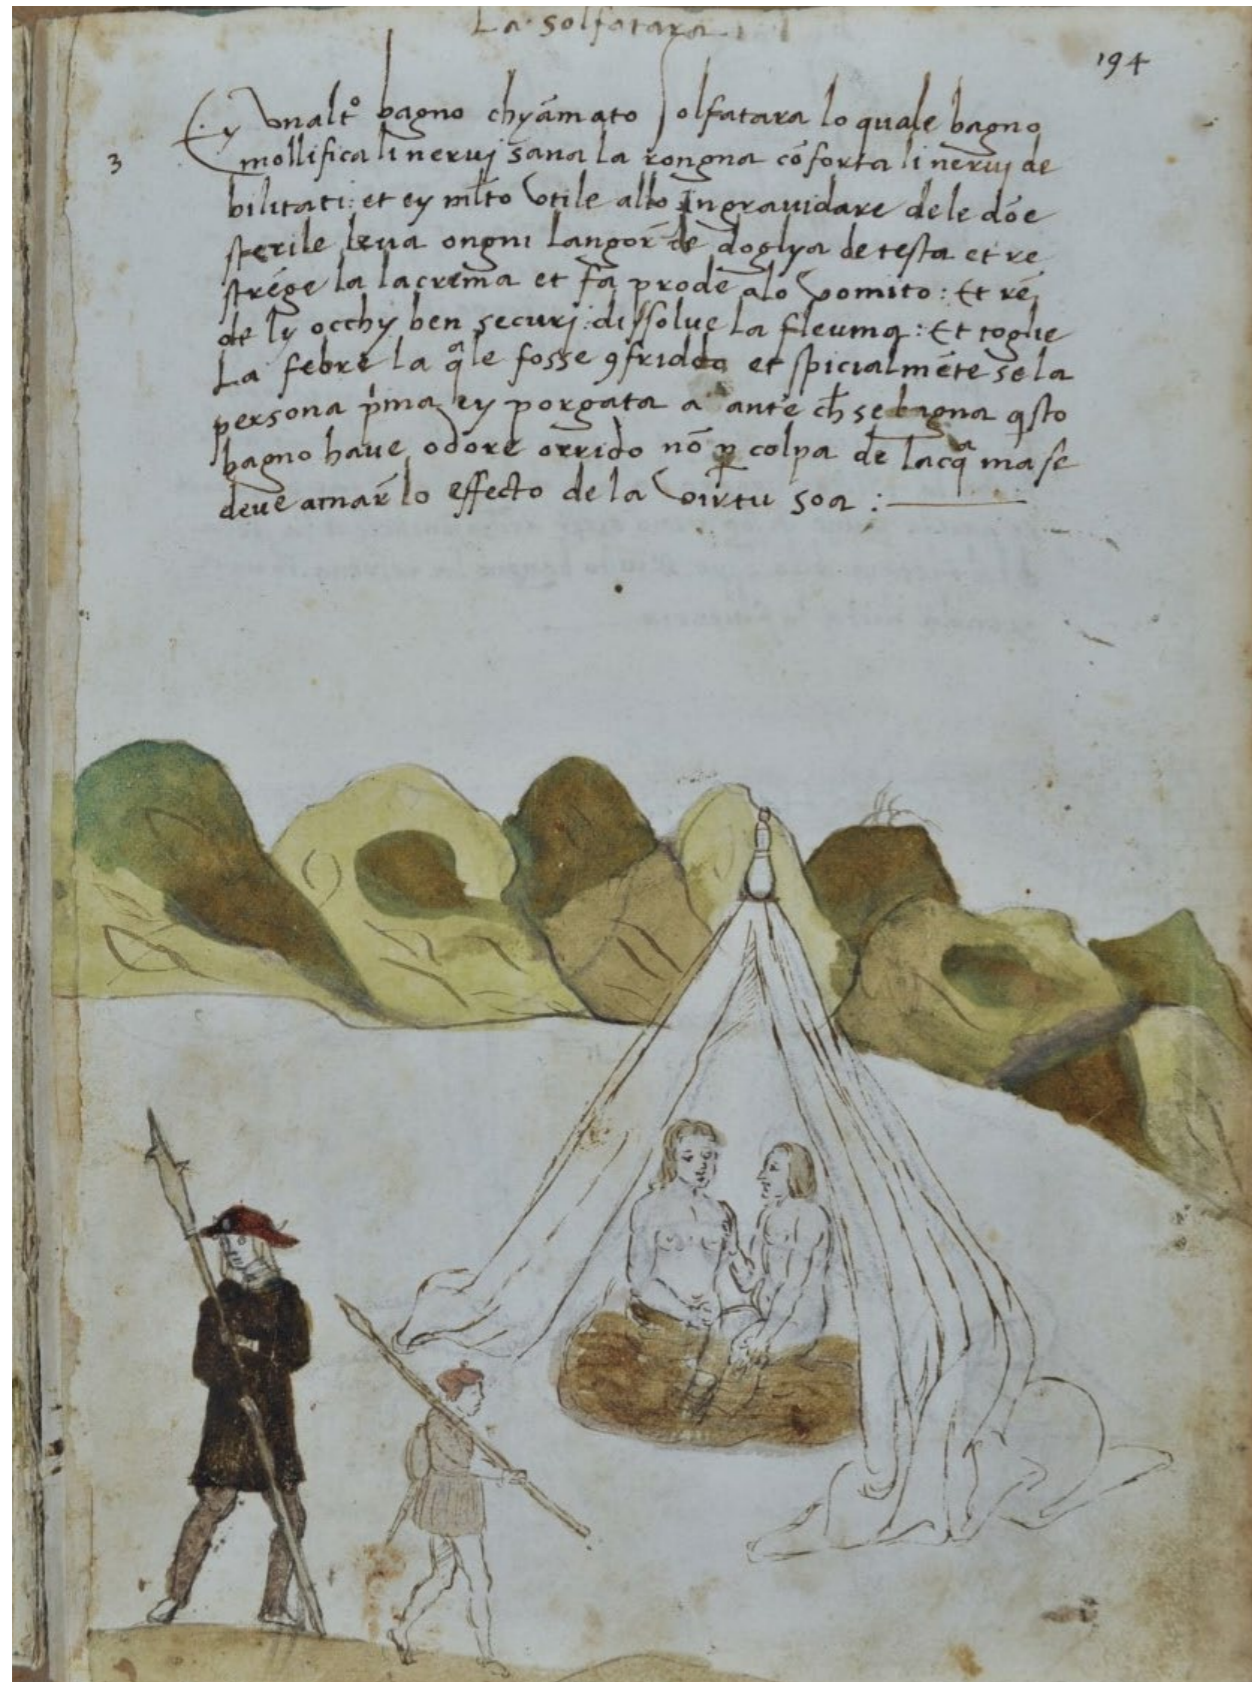 La solfatara
194
Ey vnalt° bagno chyāmato Solfatara lo quale bagno
3
mollifica li neruj sana la rongna cōforta li neruj de
bilitati: et ey ml̄to vtile allo Ingrauidare dele dōe
sterile leua ongni langor̄ de doglya de testa et re
strēge la lacrema et fa prode alo vomito: Et rē
de ly occhy ben securj: dissolue la fleuma: Et toglie
La febre la q̄le fosse ꝯfriddo et spicialmēte se la
persona p̄ma ey porgata a ante ch̄ se bagna q̄sto
bagno haue odore orrido nō ꝑ colpa de lacq̄ ma se
deue amar̄ lo effecto de la virtu soa :